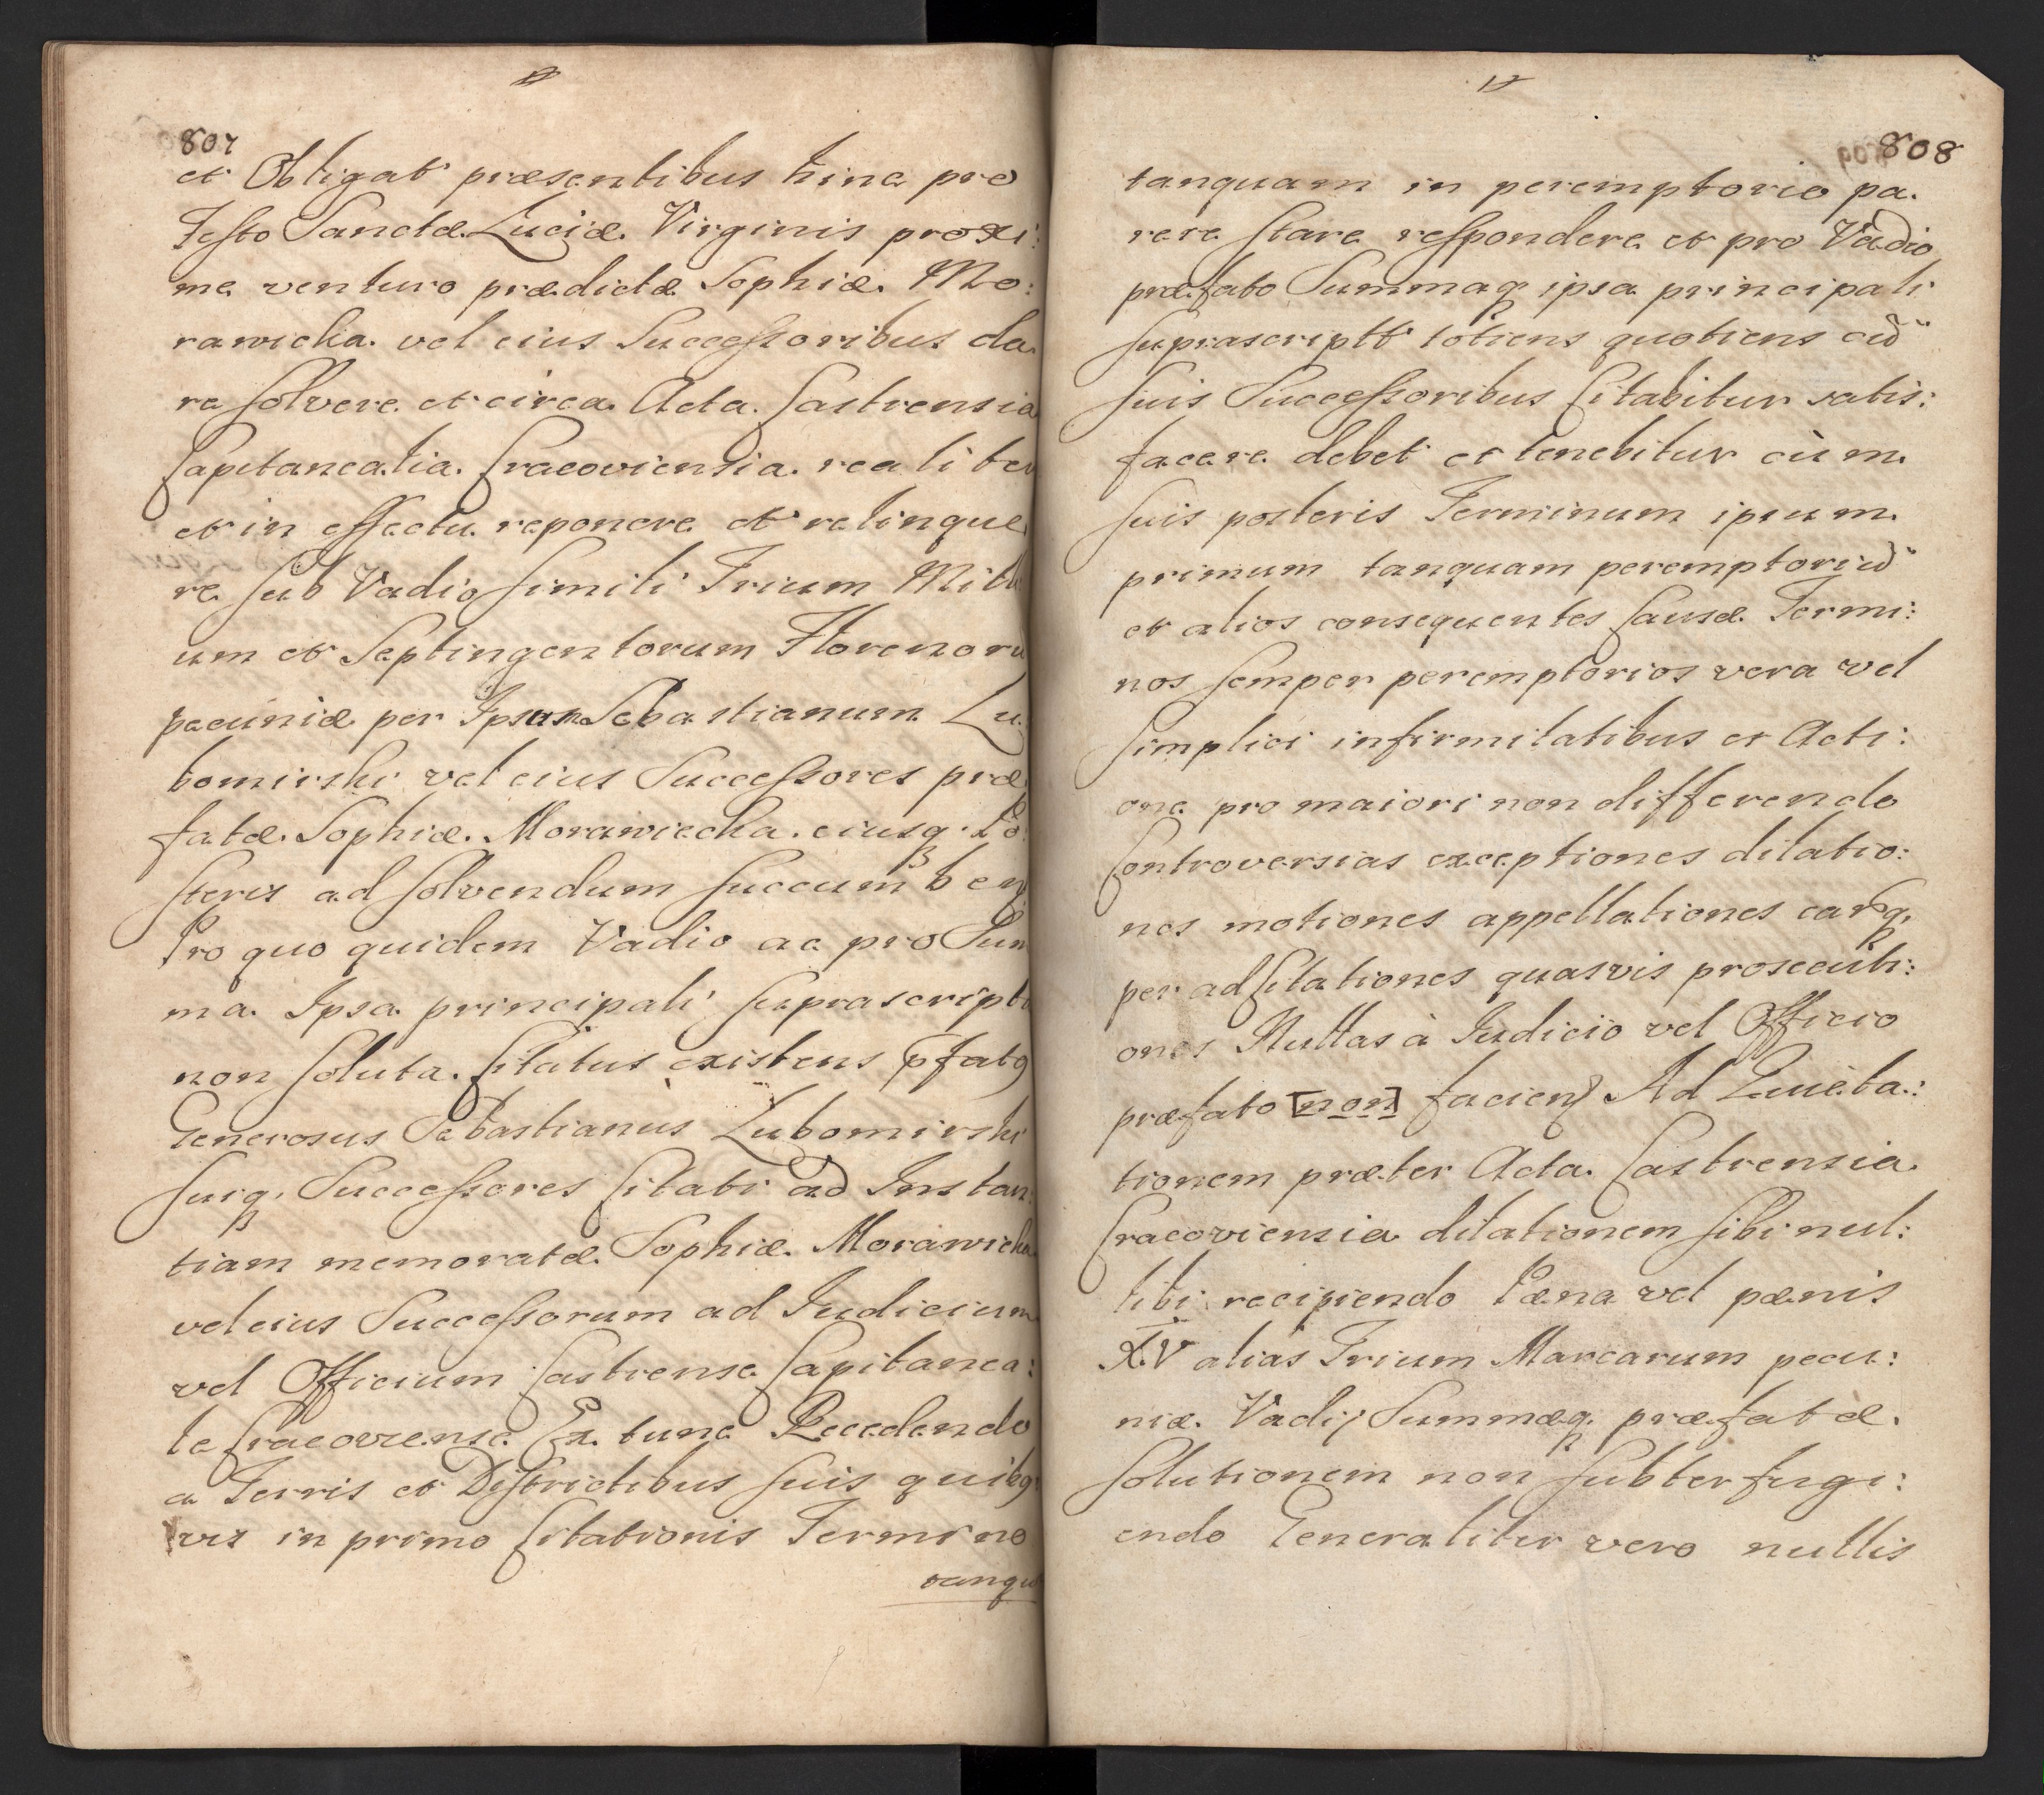 807
et Obligat præsentibus hinc pro
Festo Sanctæ Luciæ Virginis proxi:
me venturo prædictæ Sophiæ Mo:
rawicka vel eius Successoribus da
re solvere et circa Acta Castrensia
Capitanealia Cracoviensia realiter
et in effectu reponere et relinque
re sub Vadio simili Trium Milli
um et Septingentorum Florenorū
pecuniæ per Ipsum Sebastianum Lu
bomirski vel eius Successores præ
fatæ Sophiæ Morawiecka eiusq. Po
steris ad solvendum succumben
Pro quo quidem Vadio ac pro Sum
ma Ipsa principali suprascripta
non soluta Citatus existens pfatꝰ
Generosus Sebastianus Lubomirski
Suiq. Successores Citati ad Instan:
tiam memoratæ Sophiæ Morawicka
vel eius Successorum ad Iudicium
vel Officium Castrense Capitanea:
le Cracoviense Ex tunc Recedendo
a Terris et Districtibus suis quibꝰ
vis in primo Citationis Termino
tanqu
808
tanquam in peremptorio pa.
rere stare respondere et pro Vadio
præfato Summaq ipsa principali
suprascriptt totiens quotiens cū
suis Successoribus Citabitur satis:
facere debet et tenebitur cùm
suis posteris Terminum ipsum
primum tanquam peremptoriū
et alios consequentes Causæ Termi:
nos semper peremptorios vera vel
simplici infirmitatibus et Acti:
one pro maiori non differendo
Controversias exceptiones dilatio:
nes motiones appellationes earq,
per adcitationes quasvis prosecuti:
ones Nullas à Iudicio vel Officio
præfato [non] facien Ad Quieta:
tionem præter Acta Castrensia
Cracoviensia dilationem sibi nul:
libi recipiendo Pæna vel pænis
X.V alias Trium Marcarum pecu:
niæ Vadij Summæq. præfatæ
solutionem non subterfugi:
endo Generaliter vero nullis